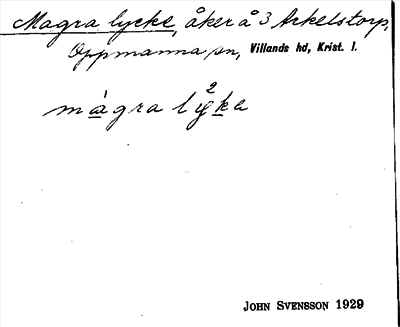 Magra lycke, åker å 3 Arkelstorp,
Oppmanna sn, Villands hd, Krist. l.
màgra ly²ka
JOHN SVENSSON 1929